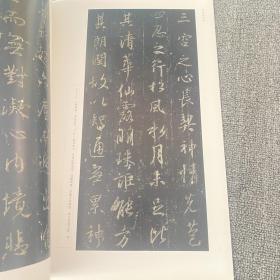 三空之心長契神情先苞
四忍之行松風水月未足比
其清華仙露明珠詎能方
其朗潤故以智通無累神
而無對凝心內境悲